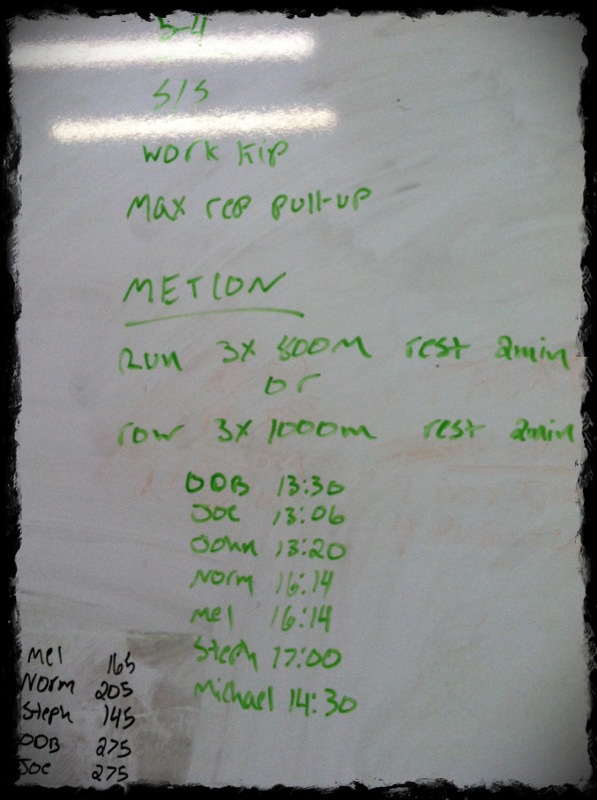 5-4
S/S
WORK KIP
MAX rep pull-up
METCON
Run 3x 800M rest 2min
or
row 3x 1000m rest 2min
DOB 13:30
JOE 13:06
John 13:20
Norm 16:14
mel 16:14
Steph 17:00
Michael 14:30
Mel 165
Norm 205
Steph 145
DOB 275
JOE 275